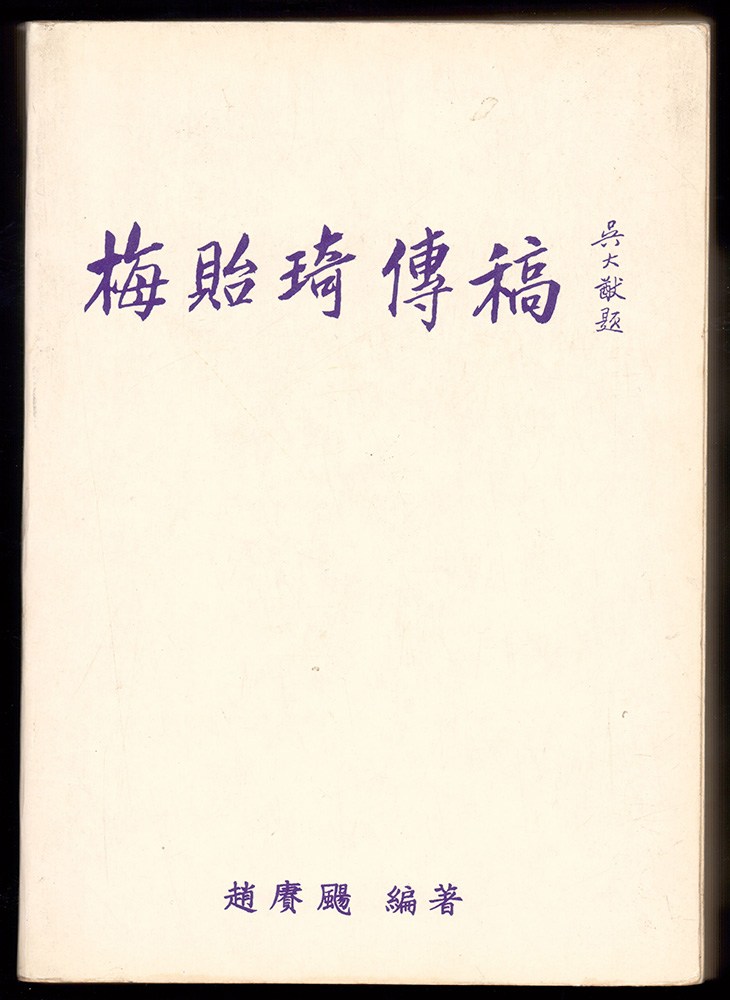 梅貽琦傳稿
吳大猷題
趙賡颺 編著